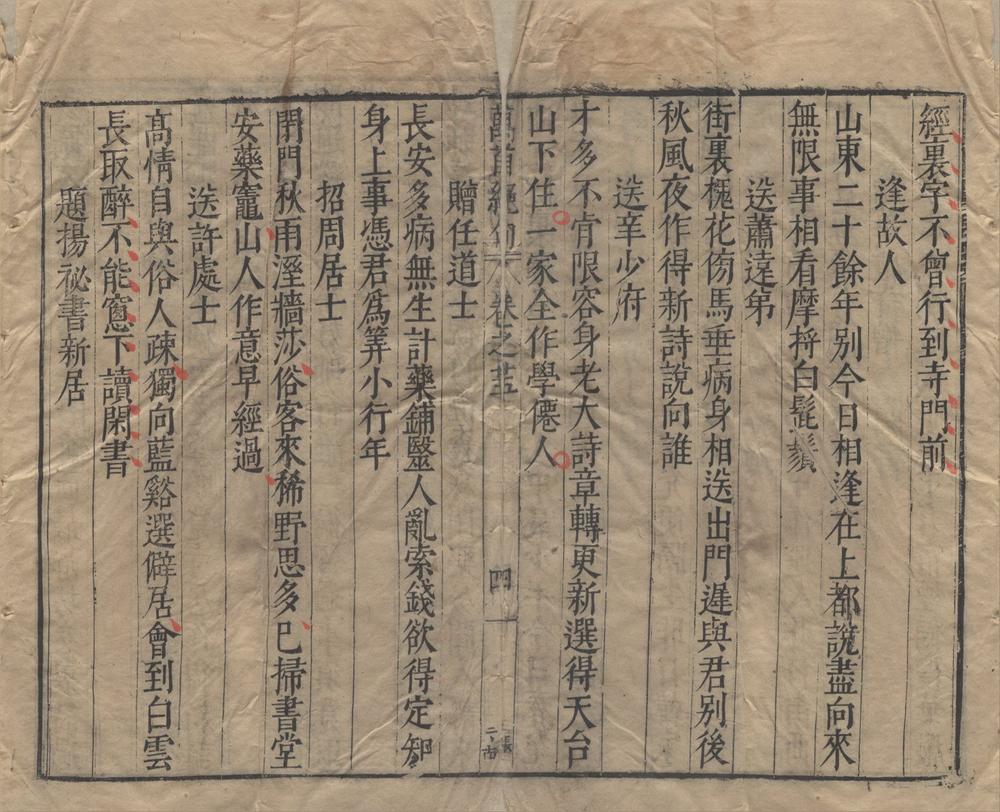 經裏字不曾行到寺門前
逢故人
山東二十餘年别今日相逢在上都說盡向來
無限事相看摩捋白髭鬚
送蕭遠弟
街裏槐花傍馬垂病身相送出門遲與君别後
秋風夜作得新詩說向誰
送辛少府
才多不肯限容身老大詩章轉更新選得天台
山下住一家全作學僊人
萬首絶句 卷之 四
贈任道士
長安多病無生計藥鋪醫人亂索錢欲得定知
身上事憑君爲筭小行年
招周居士
閉門秋雨溼牆莎俗客來稀野思多已掃書堂
安藥竈山人作意早經過
送許處士
高情自與俗人疎獨向藍谿選僻居會到白雲
長取醉不能窻下讀閑書
題揚祕書新居